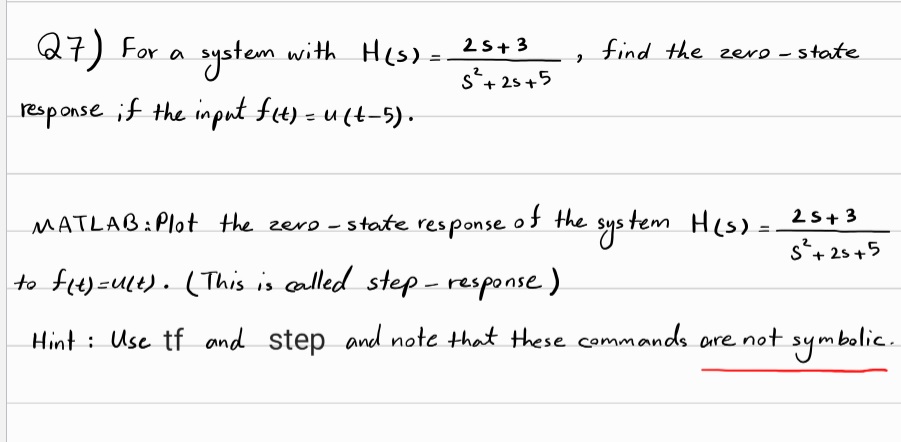 Q7) For a system with H(s) = \frac{2s+3}{s^2+2s+5} , find the zero-state
response if the input f(t) = u(t-5).
MATLAB: Plot the zero-state response of the system H(s) = \frac{2s+3}{s^2+2s+5}
to f(t)=u(t). (This is called step-response)
Hint : Use tf and step and note that these commands are not symbolic.